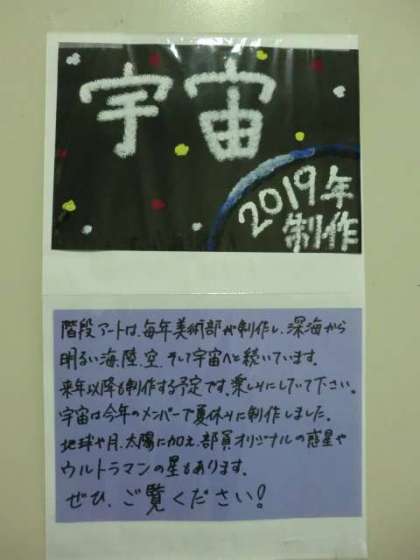 宇宙
2019年
制作
階段アートは、毎年美術部が制作し、深海から
明るい海、陸、空、そして宇宙へと続いています。
来年以降も制作する予定です。楽しみにしていて下さい。
宇宙は今年のメンバーで夏休みに制作しました。
地球や月、太陽に加え、部員オリジナルの惑星や
ウルトラマンの星もあります。
ぜひ、ご覧ください!